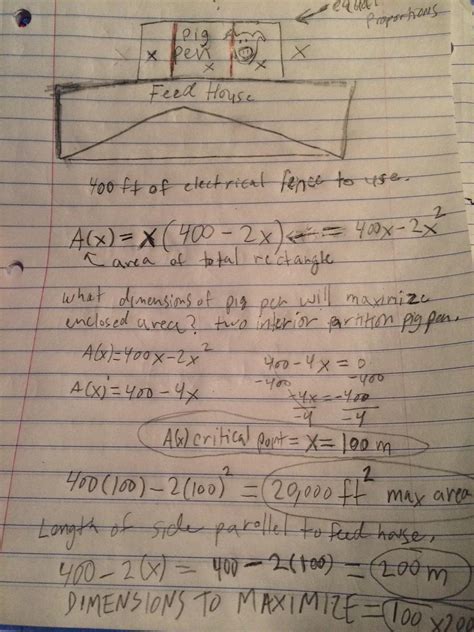 equal
proportions
pig
x x pen x X
Feed House
400 ft of electrical fence to use.
A(x) = x(400 - 2x) = 400x - 2x²
area of total rectangle
what dimensions of pig pen will maximize
enclosed area? two interior partition pig pen.
A(x) = 400x - 2x² 400 - 4x = 0
-400 -400
A(x)' = 400 - 4x -4x = -400
-4 -4
A(x) critical point = x = 100 m
400(100) - 2(100)² = 20,000 ft² max area
Length of side parallel to feed house,
400 - 2(x) = 400 - 2(100) = 200 m
DIMENSIONS TO MAXIMIZE = 100 x 200